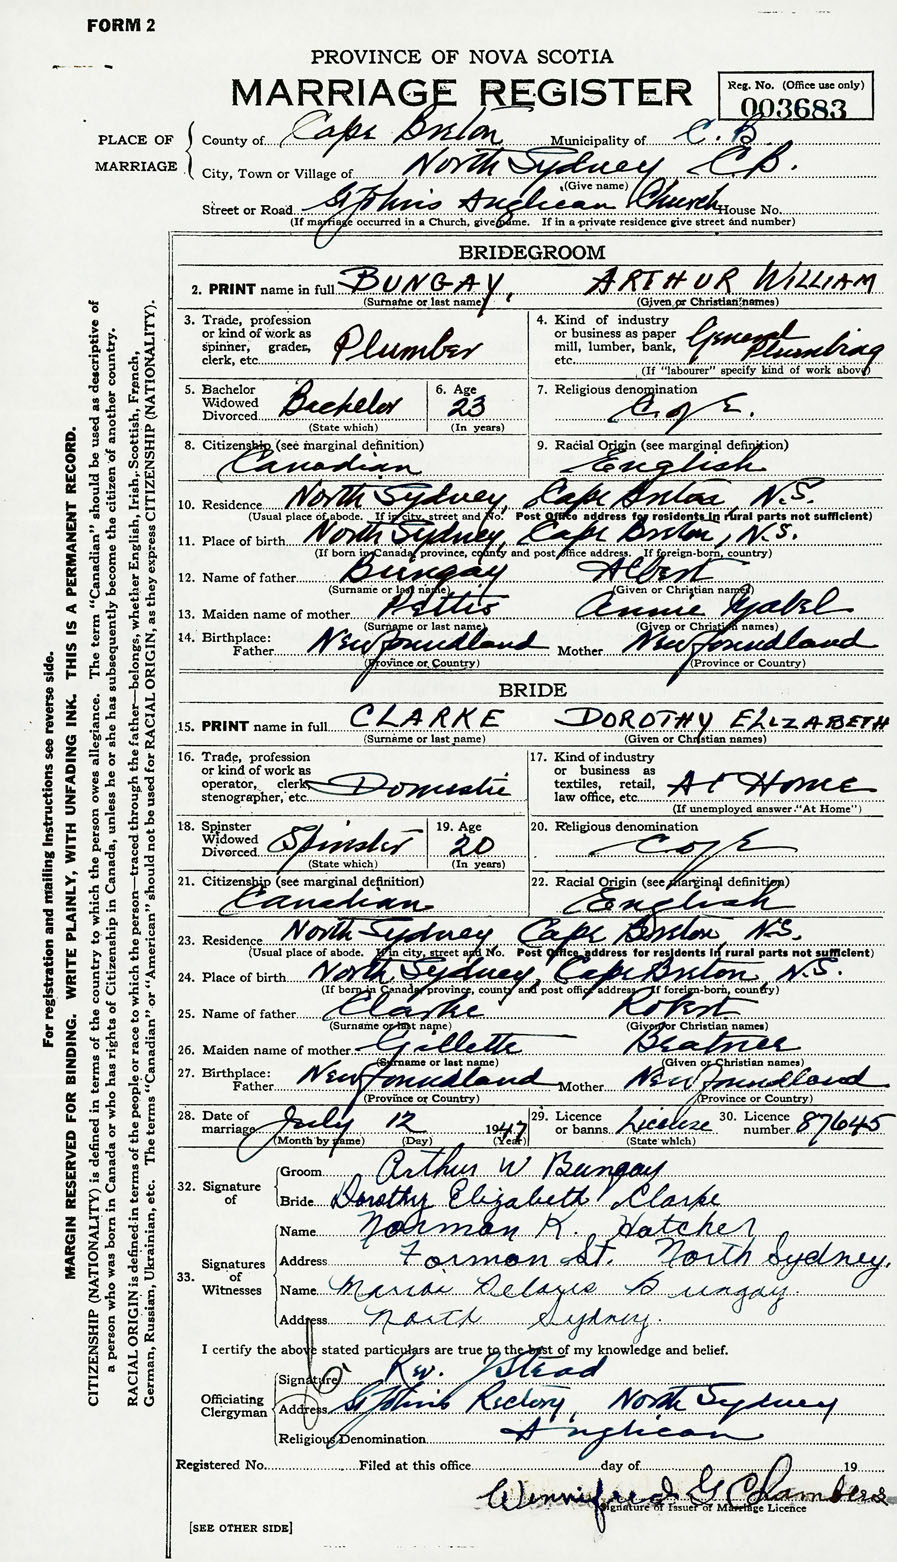 FORM 2
PROVINCE OF NOVA SCOTIA
MARRIAGE REGISTER
Reg. No. (Office use only)
003683
PLACE OF MARRIAGE
County of Cape Breton Municipality of C. B.
City, Town or Village of North Sydney C.B.
(Give name)
Street or Road St John's Anglican Church House No.
(If marriage occurred in a Church, give name. If in a private residence give street and number)
BRIDEGROOM
2. PRINT name in full BUNGAY, ARTHUR WILLIAM
(Surname or last name) (Given or Christian names)
3. Trade, profession or kind of work as spinner, grader, clerk, etc. Plumber
4. Kind of industry or business as paper mill, lumber, bank, etc. General Plumbing
(If "labourer" specify kind of work above)
5. Bachelor Widowed Divorced Bachelor
(State which)
6. Age 23
(In years)
7. Religious denomination C of E.
8. Citizenship (see marginal definition) Canadian
9. Racial Origin (see marginal definition) English
10. Residence North Sydney, Cape Breton, N.S.
(Usual place of abode. If in city, street and No. Post Office address for residents in rural parts not sufficient)
11. Place of birth North Sydney, Cape Breton, N.S.
(If born in Canada, province, county and post office address. If foreign-born, country)
12. Name of father Bungay Albert
(Surname or last name) (Given or Christian names)
13. Maiden name of mother Annie
(Surname or last name) (Given or Christian names)
14. Birthplace: Father Newfoundland Mother Newfoundland
(Province or Country) (Province or Country)
BRIDE
15. PRINT name in full CLARKE DOROTHY ELIZABETH
(Surname or last name) (Given or Christian names)
16. Trade, profession or kind of work as operator, clerk, stenographer, etc. Domestic
17. Kind of industry or business as textiles, retail, law office, etc. At Home
(If unemployed answer "At Home")
18. Spinster Widowed Divorced Spinster
(State which)
19. Age 20
(In years)
20. Religious denomination C of E
21. Citizenship (see marginal definition) Canadian
22. Racial Origin (see marginal definition) English
23. Residence North Sydney Cape Breton N.S.
(Usual place of abode. If in city, street and No. Post Office address for residents in rural parts not sufficient)
24. Place of birth North Sydney, Cape Breton, N.S.
(If born in Canada, province, county and post office address. If foreign-born, country)
25. Name of father Clarke Robert
(Surname or last name) (Given or Christian names)
26. Maiden name of mother Gillette Beatrice
(Surname or last name) (Given or Christian names)
27. Birthplace: Father Newfoundland Mother Newfoundland
(Province or Country) (Province or Country)
28. Date of marriage July 12 1947
(Month by name) (Day) (Year)
29. Licence or banns License
(State which)
30. Licence number 87645
32. Signature of
Groom Arthur W Bungay
Bride Dorothy Elizabeth Clarke
33. Signatures of Witnesses
Name Norman K. Hatcher
Address Forman St. North Sydney.
Name Bungay.
Address North Sydney.
I certify the above stated particulars are true to the best of my knowledge and belief.
Officiating Clergyman
Signature Rev. Stead
Address St John's Rectory, North Sydney
Religious Denomination Anglican
Registered No. Filed at this office day of 19
Winnifred G Chambers
Signature of Issuer of Marriage Licence
[SEE OTHER SIDE]
For registration and mailing instructions see reverse side.
MARGIN RESERVED FOR BINDING. WRITE PLAINLY, WITH UNFADING INK. THIS IS A PERMANENT RECORD.
CITIZENSHIP (NATIONALITY) is defined in terms of the country to which the person owes allegiance. The term "Canadian" should be used as descriptive of
a person who was born in Canada or who has rights of Citizenship in Canada, unless he or she has subsequently become the citizen of another country.
RACIAL ORIGIN is defined in terms of the people or race to which the person—traced through the father—belongs, whether English, Irish, Scottish, French,
German, Russian, Ukrainian, etc. The terms "Canadian" or "American" should not be used for RACIAL ORIGIN, as they express CITIZENSHIP (NATIONALITY).